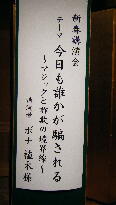 新春講演会
テーマ 今日も誰かが騙される
～マジックと詐欺の境界線～
講師 ボナ植木様